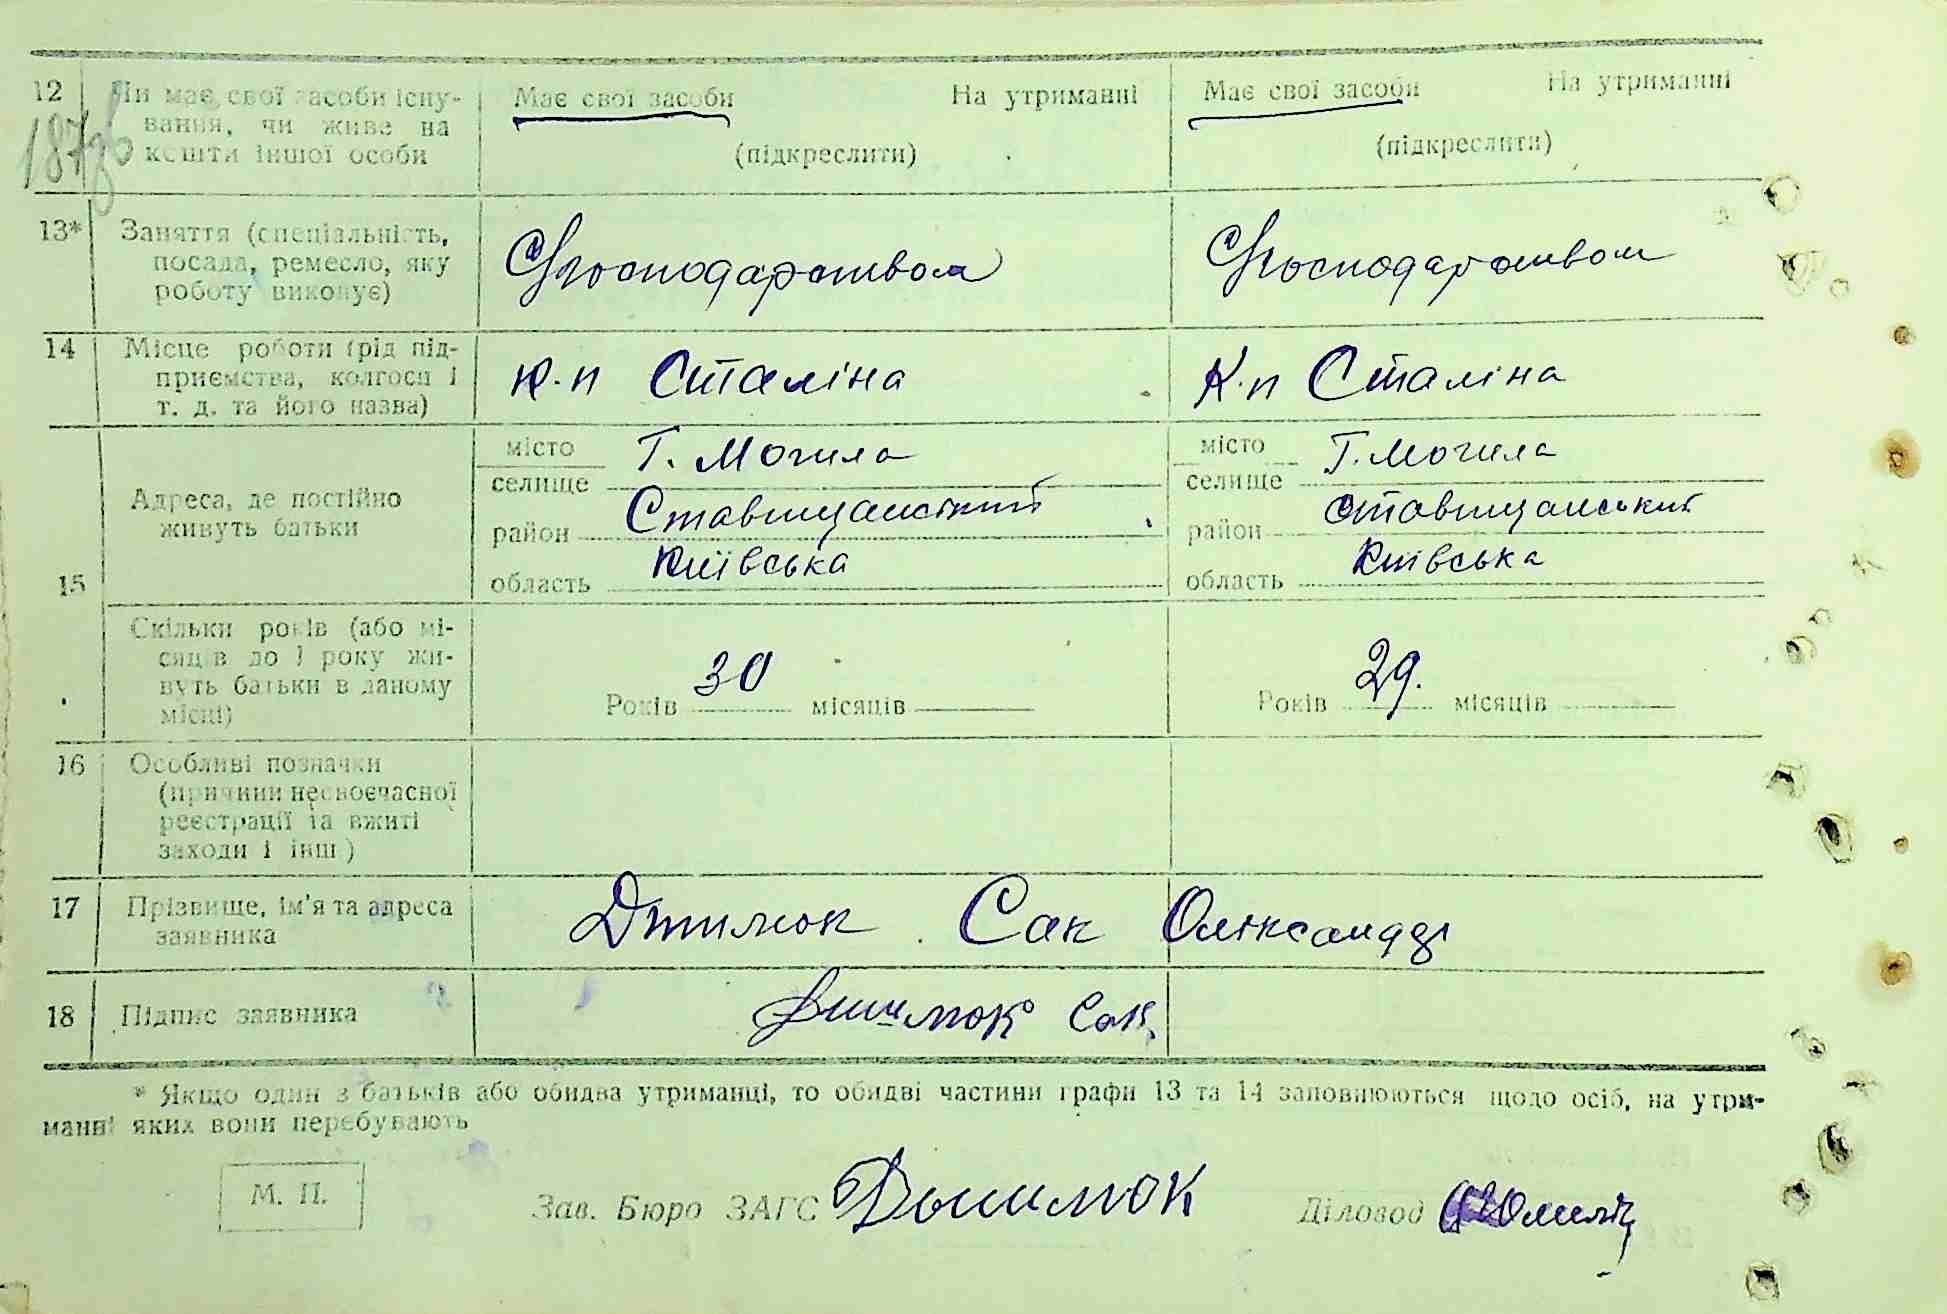 12 Чи має свої засоби існу- Має свої засоби На утриманні Має свої засоби На утриманні
вання, чи живе на
кошти іншої особи (підкреслити) (підкреслити)
13* Заняття (спеціальність,
посада, ремесло, яку
роботу виконує)
14 Місце роботи (рід під-
приємства, колгосп і к.п Сталіна К.п Сталіна
т. д. та його назва)
місто Г. Могила місто Г. Могила
селище селище
15 Адреса, де постійно
живуть батьки
район Ставищанський район Ставищанський
область Київська область Київська
Скільки років (або мі-
сяців до 1 року жи-
вуть батьки в даному
місці) Років 30 місяців Років 29. місяців
16 Особливі позначки
(причини несвоєчасної
реєстрації та вжиті
заходи і інш.)
17 Прізвище, ім'я та адреса
заявника Сак
18 Підпис заявника Сак
* Якщо один з батьків або обидва утриманці, то обидві частини графи 13 та 14 заповнюються щодо осіб, на утри-
манні яких вони перебувають
М. П.
Зав. Бюро ЗАГС Діловод